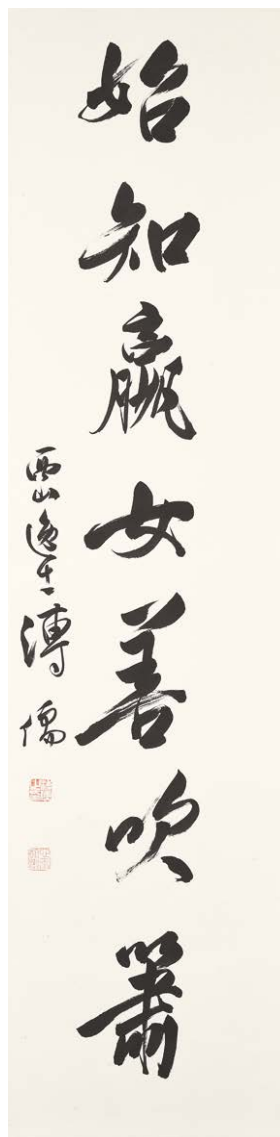 始知嬴女善吹簫
西山逸士溥儒